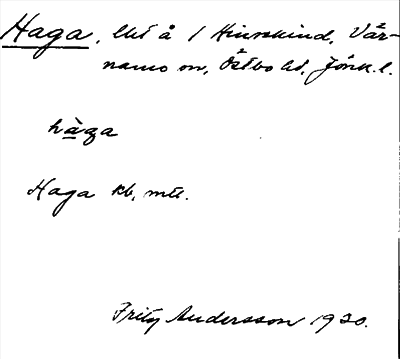 Haga, lht å 1 Hinnskind, Vär-
namo sn, Östbo hd, Jönk. l.
hàga
Haga kb, mtl.
Fritz Andersson 1920.